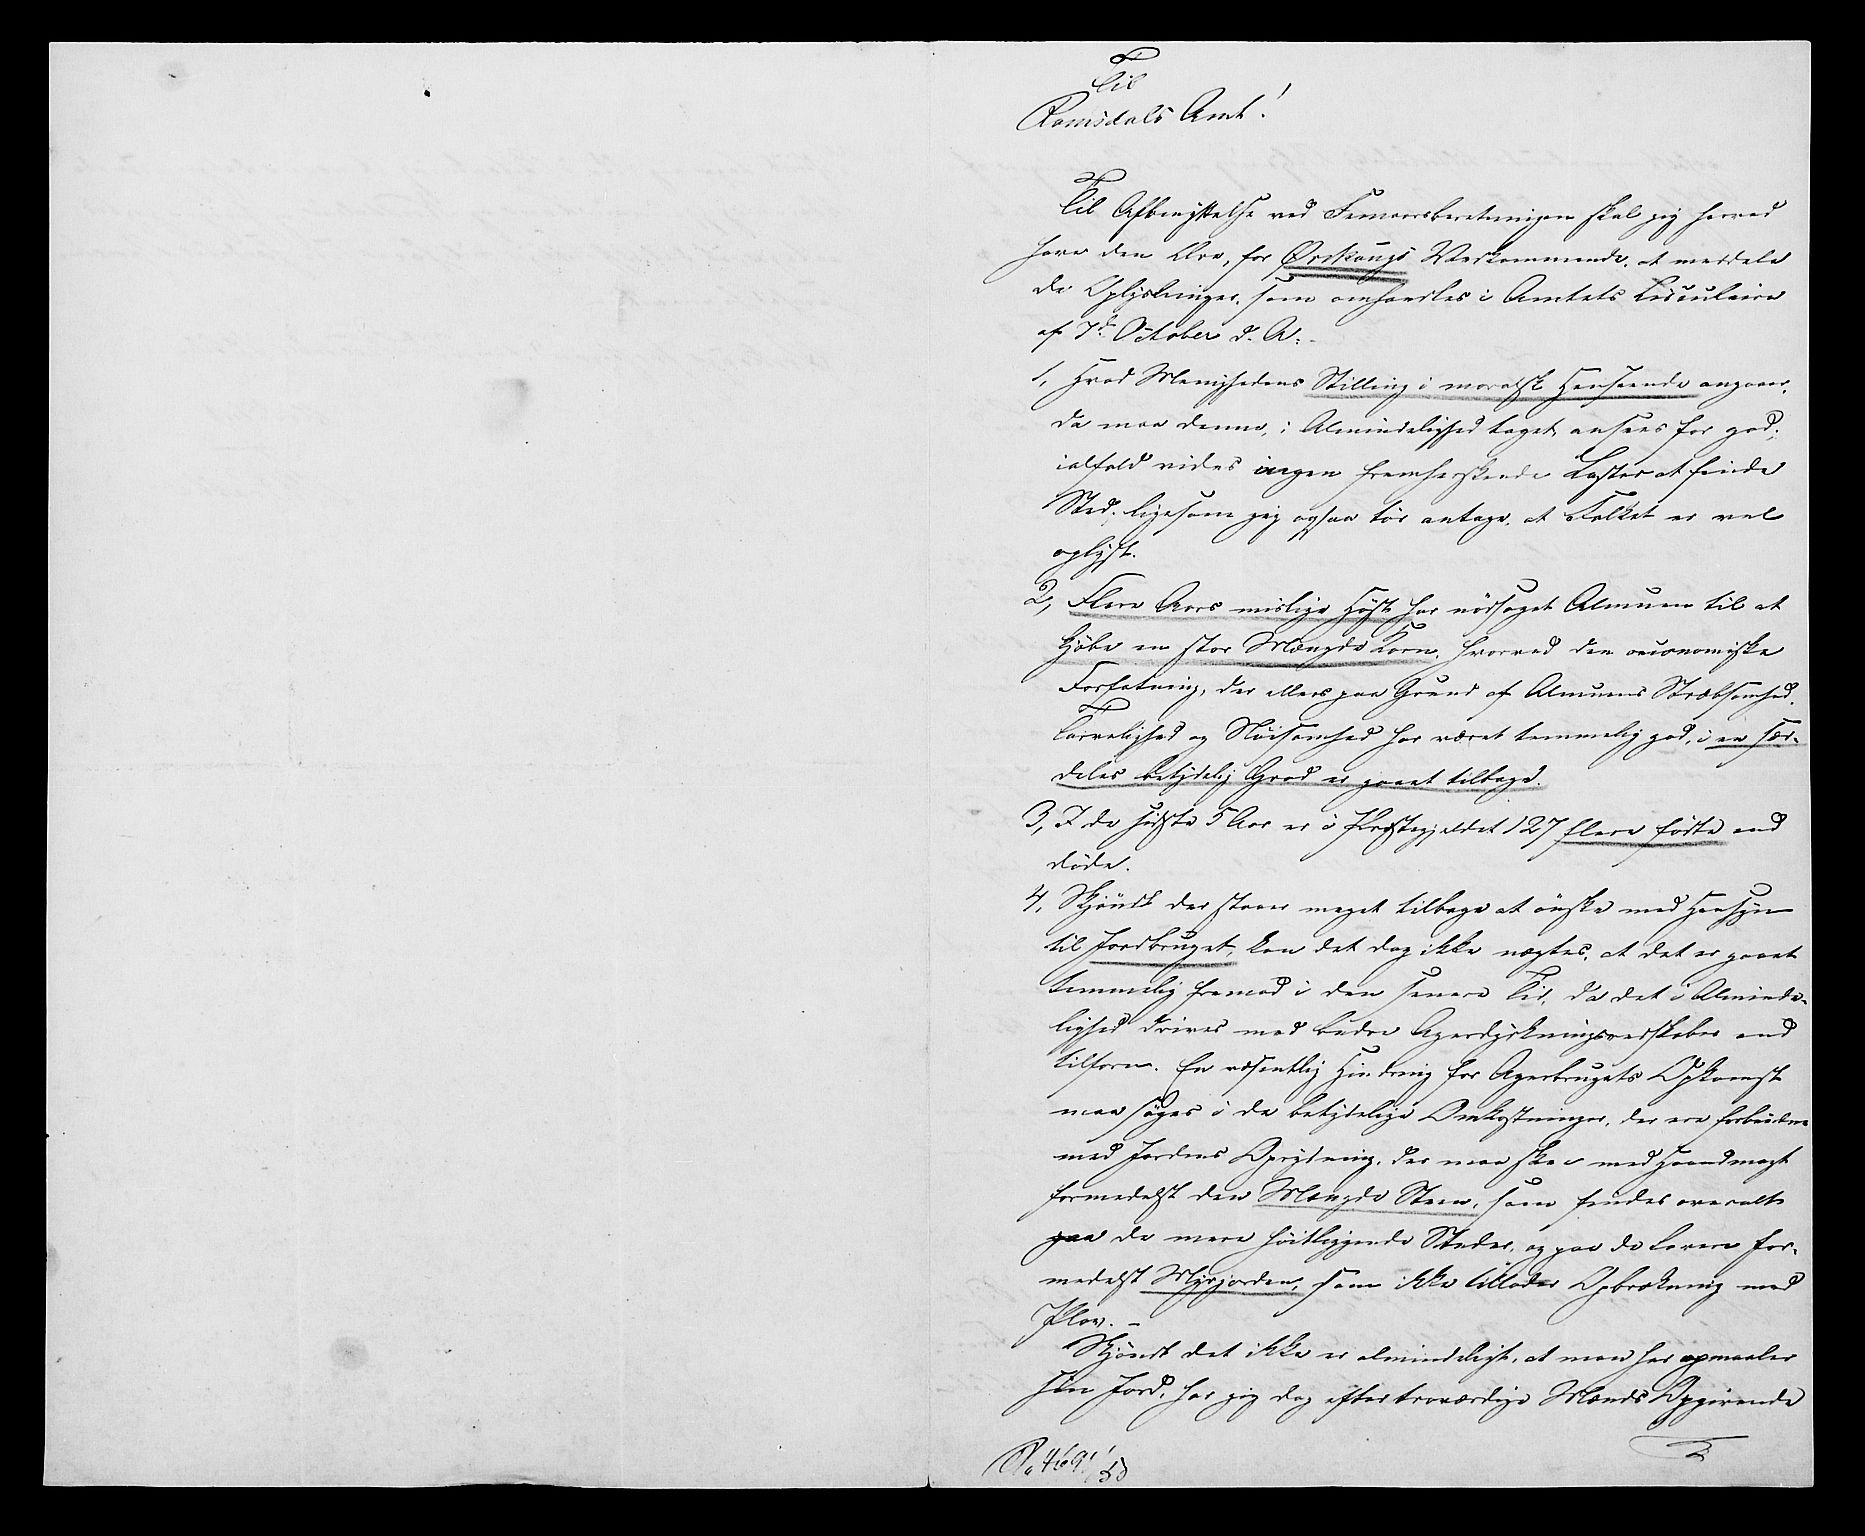 Til
Romsdals Amt!
Til Afbenyttelse ved Femaarsberetningen skal jeg herved
have den Ære, for Ørskougs Vedkommende, at meddele
de Oplysninger, som omhandles i Amtets Circulaire
af 7de October d. A:
1, Hvad Menighedens Stilling i moralsk Henseende angaaer,
da maa denne, i Almindelighed taget, ansees for god;
ialfald vides ingen fremherskende Laster at finde
Sted, ligesom jeg ogsaa tør antage, at Folket er vel
oplyst.
2, Flere Aars mislige Høst har nødsaget Almuen til at
kjøbe en stor Mængde Korn, hvorved den oeconomiske
Forfatning, der ellers paa Grund af Almuens Stræbsomhed,
Tarvelighed og Nøisomhed har været temmelig god, i en sær-
deles betydelig Grad er gaaet tilbage.
3, I de sidste 5 Aar er i Præstegjeldet 127 flere fødte end
døde.
4, Skjøndt der staaer meget tilbage at ønske med Hensyn
til Jordbruget, kan det dog ikke nægtes, at det er gaaet
temmelig fremad i den senere Tid, da det i Alminde-
lighed drives med bedre Agerdyrkningsredskaber end
tilforn. En væsentlig Hindring for Agerbrugets Opkomst
maa søges i de betydelige Omkostninger, der ere forbundne
med Jordens Oprydning, der maa skee med Haandmagt
formedelst den Mængde Steen, som findes overalt
paa de mere høitliggende Steder, og paa de lavere for-
medelst Myrjorden, som ikke tillader Opbrækning med
Plov. –
Skjøndt det ikke er almindeligt, at man her opmaaler
sin Jord, har jeg dog efter troværdige Mænds Opgivende